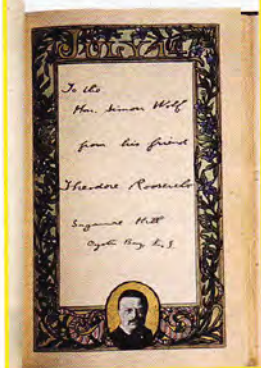 To the
Hon. Simon Wolf
from his friend
Theodore Roosevelt
Sagamore Hill
Oyster Bay N.Y.